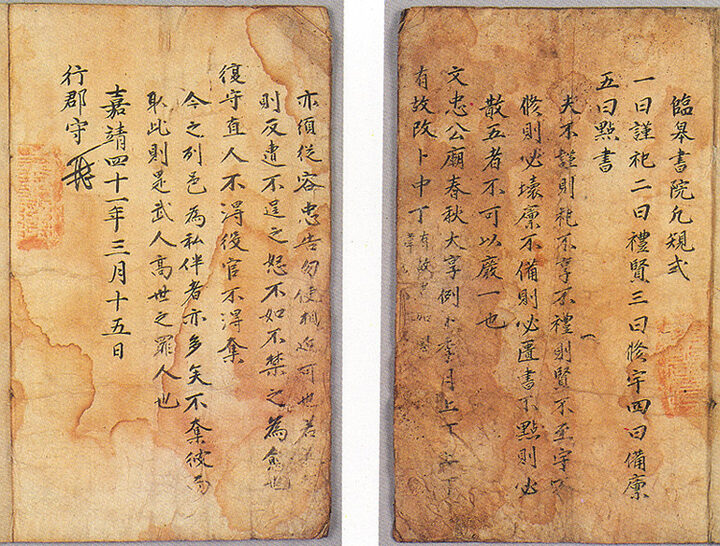 臨皋書院凡規式
一曰謹祀二曰禮賢三曰修宇四曰備廩
五曰點書
夫不謹則祀不享不禮則賢不至宇不
修則必壞廩不備則必匱書不點則必
散五者不可以廢一也
文忠公廟春秋大享例以季月上丁
有故改卜中丁
亦須從容忠告勿使 可也若
則反遭不逞之怒不如不禁之為愈也
復守直人不得役官不得奪
今之列邑為私伴者亦多矣不奪彼而
取此則是武人高世之罪人也
嘉靖四十一年三月十五日
行郡守